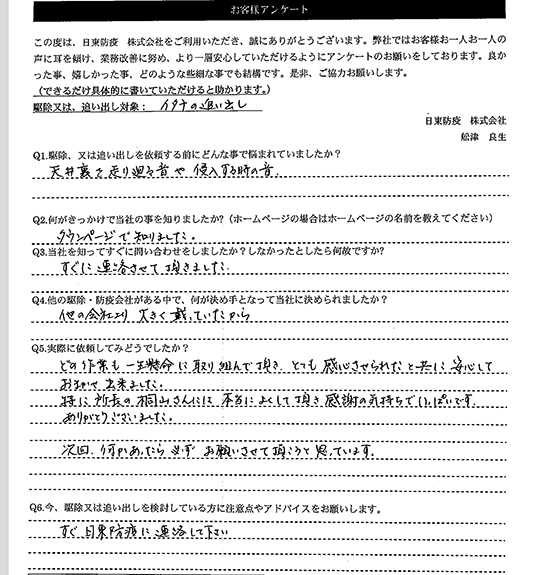 お客様アンケート
この度は、日東防疫 株式会社をご利用いただき、誠にありがとうございます。弊社ではお客様お一人お一人の
声に耳を傾け、業務改善に努め、より一層安心していただけるようにアンケートのお願いをしております。良か
った事、嬉しかった事、どのような些細な事でも結構です。是非、ご協力お願いします。
(できるだけ具体的に書いていただけると助かります。)
駆除又は、追い出し対象: イタチの追い出し
日東防疫 株式会社
舩津 良生
Q1.駆除、又は追い出しを依頼する前にどんな事で悩まれていましたか?
天井裏で走り廻る音や侵入する時の音.
Q2.何がきっかけで当社の事を知りましたか?(ホームページの場合はホームページの名前を教えてください)
タウンページで知りました。
Q3.当社を知ってすぐに問い合わせをしましたか?しなかったとしたら何故ですか?
すぐに連絡させて頂きました.
Q4.他の駆除・防疫会社がある中で、何が決め手となって当社に決められましたか?
他の会社より 大きく載っていたから
Q5.実際に依頼してみどうでしたか?
どの作業も一生懸命に取り組んで頂き、とても感心させられたと共に安心して
おまかせ出来ました。
特に所長の桐山さんには本当によくして頂き感謝の気持ちでいっぱいです.
ありがとうございました。
次回、何かあったら必ずお願いさせて頂こうと思っています.
Q6.今、駆除又は追い出しを検討している方に注意点やアドバイスをお願いします。
すぐ日東防疫に連絡して下さい